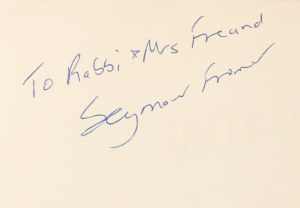 To Rabbi & Mrs Freund
Seymour Fromer